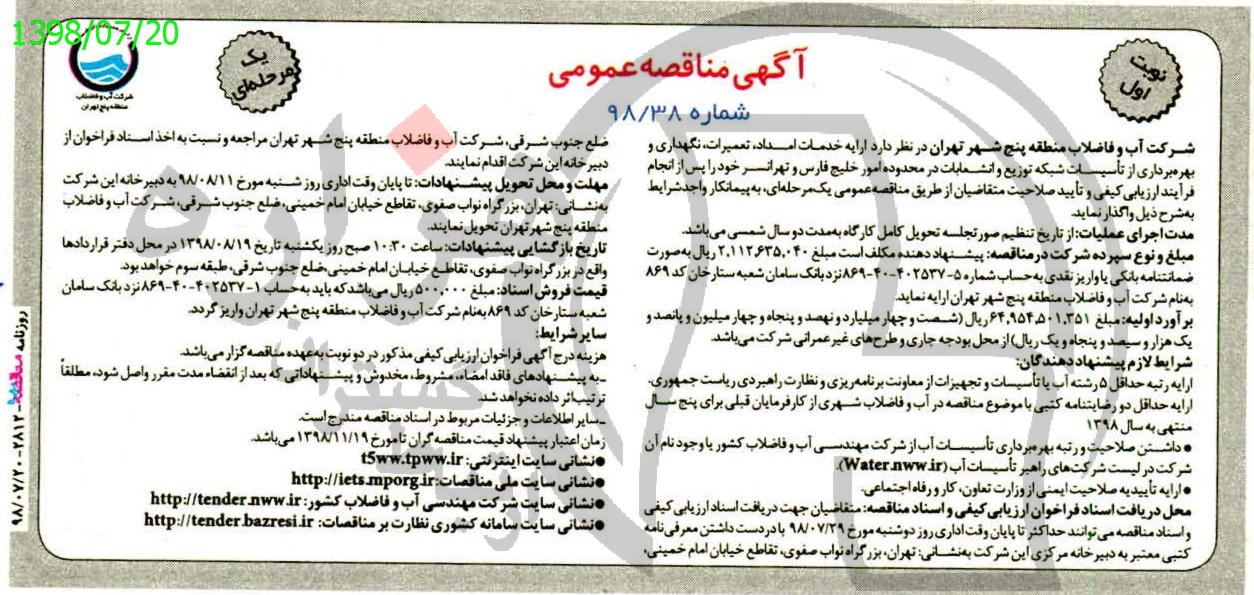 1398/07/20
شرکت آب و فاضلاب
منطقه پنج تهران
یک
مرحله‌ای
نوبت
اول
آگهی مناقصه عمومی
شماره ۹۸/۳۸
شرکت آب و فاضلاب منطقه پنج شهر تهران در نظر دارد ارایه خدمات امداد، تعمیرات، نگهداری و
بهره‌برداری از تأسیسات شبکه توزیع و انشعابات در محدوده امور خلیج فارس و تهرانسر خود را پس از انجام
فرآیند ارزیابی کیفی و تأیید صلاحیت متقاضیان از طریق مناقصه عمومی یک مرحله‌ای، به پیمانکار واجد شرایط
به شرح ذیل واگذار نماید.
مدت اجرای عملیات: از تاریخ تنظیم صورتجلسه تحویل کامل کارگاه به مدت دو سال شمسی می‌باشد.
مبلغ و نوع سپرده شرکت در مناقصه: پیشنهاد دهنده مکلف است مبلغ ۲,۱۱۲,۶۳۵,۰۴۰ ریال به صورت
ضمانتنامه بانکی یا واریز نقدی به حساب شماره ۵-۴۰۲۵۳۷-۴۰-۸۶۹ نزد بانک سامان شعبه ستارخان کد ۸۶۹
به نام شرکت آب و فاضلاب منطقه پنج شهر تهران ارایه نماید.
برآورد اولیه: مبلغ ۶۴,۹۵۴,۵۰۱,۳۵۱ ریال (شصت و چهار میلیارد و نهصد و پنجاه و چهار میلیون و پانصد و
یک هزار و سیصد و پنجاه و یک ریال) از محل بودجه جاری و طرح‌های غیر عمرانی شرکت می‌باشد.
شرایط لازم پیشنهاد دهندگان:
ارایه رتبه حداقل ۵ رشته آب یا تأسیسات و تجهیزات از معاونت برنامه‌ریزی و نظارت راهبردی ریاست جمهوری.
ارایه حداقل دو رضایتنامه کتبی با موضوع مناقصه در آب و فاضلاب شهری از کارفرمایان قبلی برای پنج سال
منتهی به سال ۱۳۹۸
●داشتن صلاحیت و رتبه بهره‌برداری تأسیسات آب از شرکت مهندسی آب و فاضلاب کشور یا وجود نام آن
شرکت در لیست شرکت‌های راهبر تأسیسات آب (Water.nww.ir).
●ارایه تأییدیه صلاحیت ایمنی از وزارت تعاون، کار و رفاه اجتماعی.
محل دریافت اسناد فراخوان ارزیابی کیفی و اسناد مناقصه: متقاضیان جهت دریافت اسناد ارزیابی کیفی
و اسناد مناقصه می‌توانند حداکثر تا پایان وقت اداری روز دوشنبه مورخ ۹۸/۰۷/۲۹ با در دست داشتن معرفی نامه
کتبی معتبر به دبیرخانه مرکزی این شرکت به نشانی: تهران، بزرگراه نواب صفوی، تقاطع خیابان امام خمینی،
ضلع جنوب شرقی، شرکت آب و فاضلاب منطقه پنج شهر تهران مراجعه و نسبت به اخذ اسناد فراخوان از
دبیرخانه این شرکت اقدام نمایند.
مهلت و محل تحویل پیشنهادات: تا پایان وقت اداری روز شنبه مورخ ۹۸/۰۸/۱۱ به دبیرخانه این شرکت
به نشانی: تهران، بزرگراه نواب صفوی، تقاطع خیابان امام خمینی، ضلع جنوب شرقی، شرکت آب و فاضلاب
منطقه پنج شهر تهران تحویل نمایند.
تاریخ بازگشایی پیشنهادات: ساعت ۱۰:۳۰ صبح روز یکشنبه تاریخ ۱۳۹۸/۰۸/۱۹ در محل دفتر قراردادها
واقع در بزرگراه نواب صفوی، تقاطع خیابان امام خمینی، ضلع جنوب شرقی، طبقه سوم خواهد بود.
قیمت فروش اسناد: مبلغ ۵۰۰۰۰۰ ریال می‌باشد که باید به حساب ۱-۴۰۲۵۳۷-۴۰-۸۶۹ نزد بانک سامان
شعبه ستارخان کد ۸۶۹ به نام شرکت آب و فاضلاب منطقه پنج شهر تهران واریز گردد.
سایر شرایط:
هزینه درج آگهی فراخوان ارزیابی کیفی مذکور در دو نوبت به عهده مناقصه گزار می‌باشد.
ـ به پیشنهادهای فاقد امضاء، مشروط، مخدوش و پیشنهاداتی که بعد از انقضاء مدت مقرر واصل شود، مطلقاً
ترتیب اثر داده نخواهد شد.
ـ سایر اطلاعات و جزئیات مربوط در اسناد مناقصه مندرج است.
زمان اعتبار پیشنهاد قیمت مناقصه گران تا مورخ ۱۳۹۸/۱۱/۱۹ می‌باشد.
●نشانی سایت اینترنتی: t5ww.tpww.ir
●نشانی سایت ملی مناقصات: http://iets.mporg.ir
●نشانی سایت شرکت مهندسی آب و فاضلاب کشور: http://tender.nww.ir
●نشانی سایت سامانه کشوری نظارت بر مناقصات: http://tender.bazresi.ir
روزنامه مناقصه - ۲۸۱۲ - ۹۸/۰۷/۲۰
هزاره